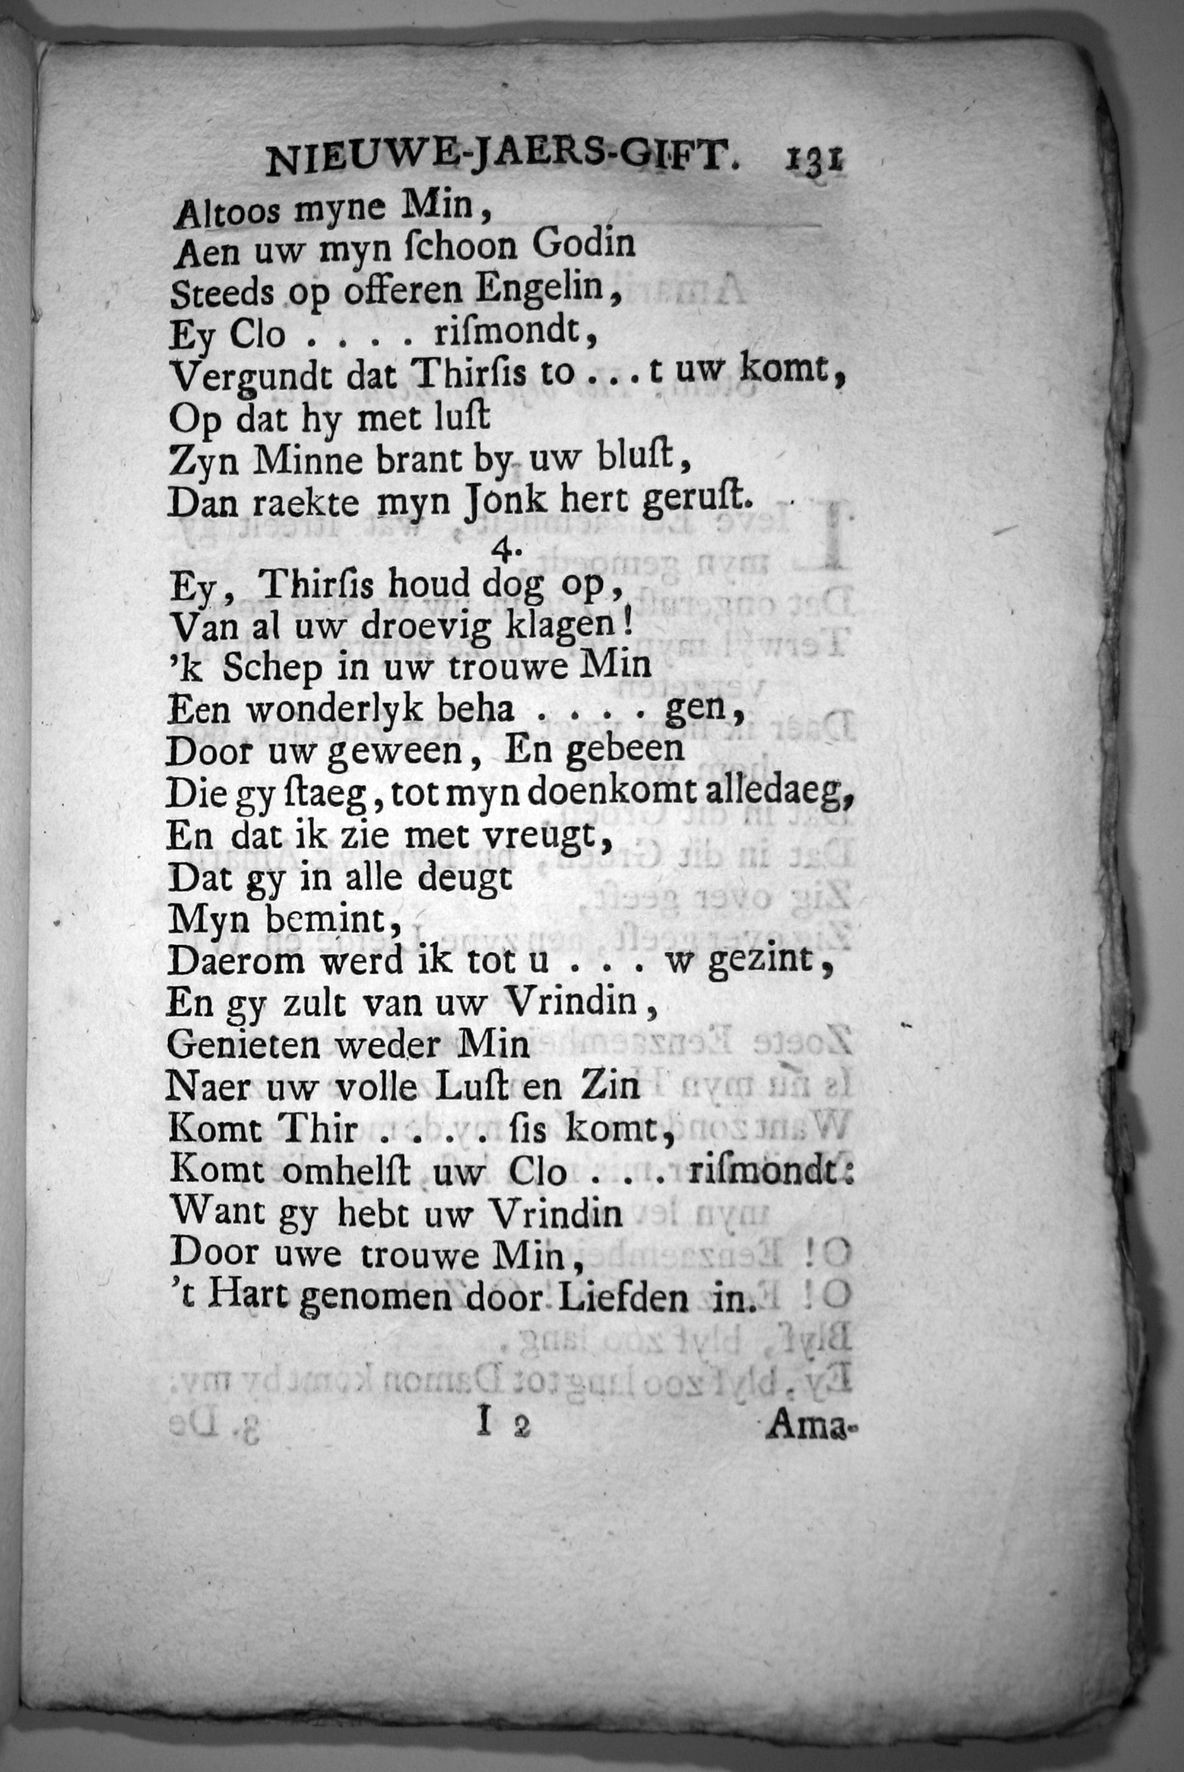 NIEUWE-JAERS-GIFT. 131
Altoos myne Min,
Aen uw myn ſchoon Godin
Steeds op offeren Engelin,
Ey Clo . . . . riſmondt,
Vergundt dat Thirſis to . . . t uw komt,
Op dat hy met luſt
Zyn Minne brant by uw bluſt,
Dan raekte myn Jonk hert geruſt.
4.
Ey, Thirſis houd dog op,
Van al uw droevig klagen!
’k Schep in uw trouwe Min
Een wonderlyk beha . . . . gen,
Door uw geween, En gebeen
Die gy ſtaeg, tot myn doenkomt alledaeg,
En dat ik zie met vreugt,
Dat gy in alle deugt
Myn bemint,
Daerom werd ik tot u . . . w gezint,
En gy zult van uw Vrindin,
Genieten weder Min
Naer uw volle Luſt en Zin
Komt Thir . . . . ſis komt,
Komt omhelſt uw Clo . . . riſmondt:
Want gy hebt uw Vrindin
Door uwe trouwe Min,
’t Hart genomen door Liefden in.
I 2 Ama-